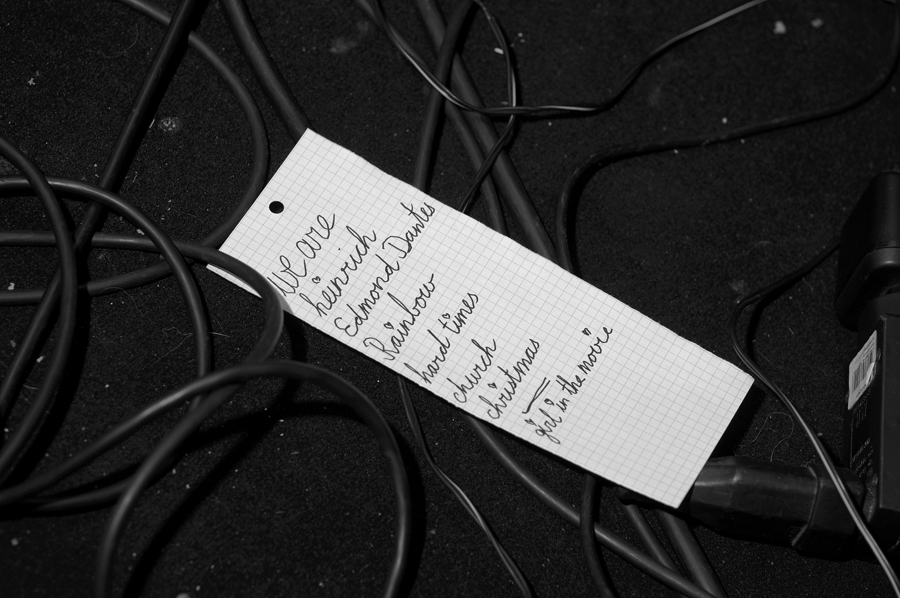 we are
heinrich
Edmond Dantes
Rainbow
hard times
church
christmas
girl in the movie